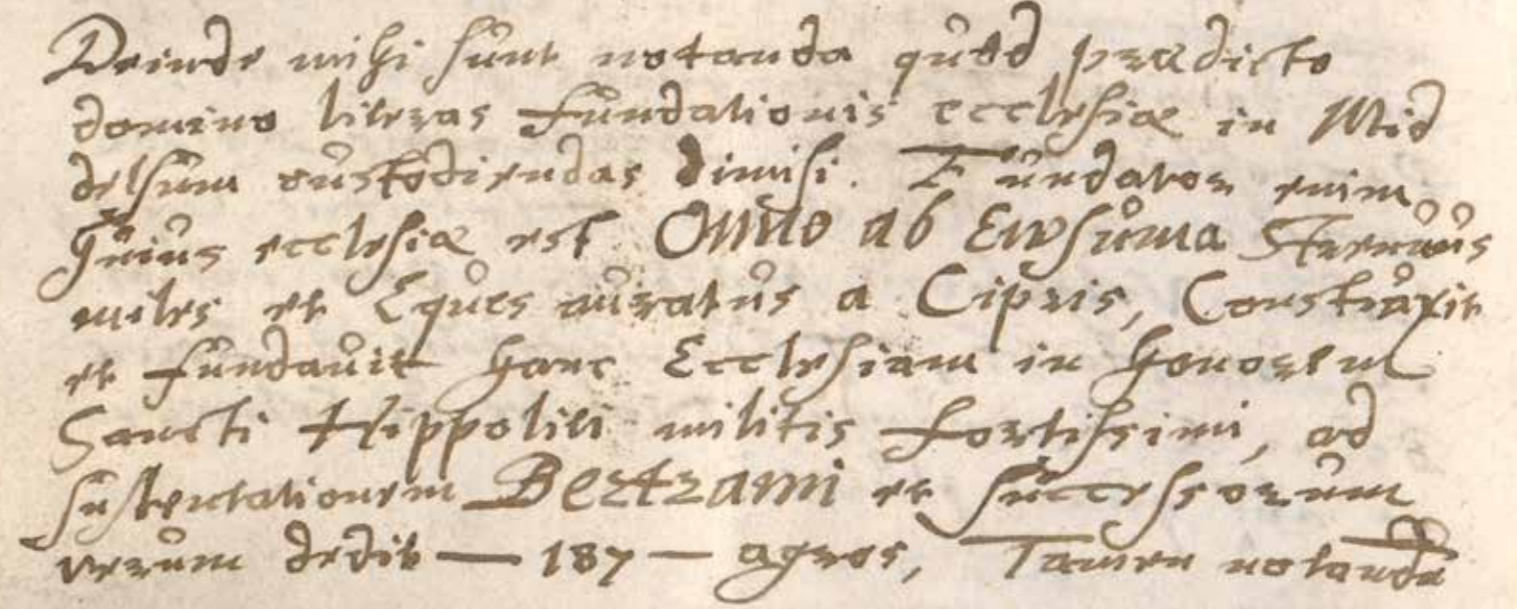 Deinde mihi sunt notanda quod prædicto
domino literas fundationis ecclesiæ in Mid
delsum custodiendas dimisi. Fundator enim
huius ecclesiæ est Omno ab Ewsuma Strenuus
miles et Eques auratus a Cipris, Construxit
et fundavit hanc Ecclesiam in honorem
Sancti Hippoliti militis fortissimi, ad
sustentationem Bertrami et successorum
verum dedit — 187 — agros, Tamen notandū